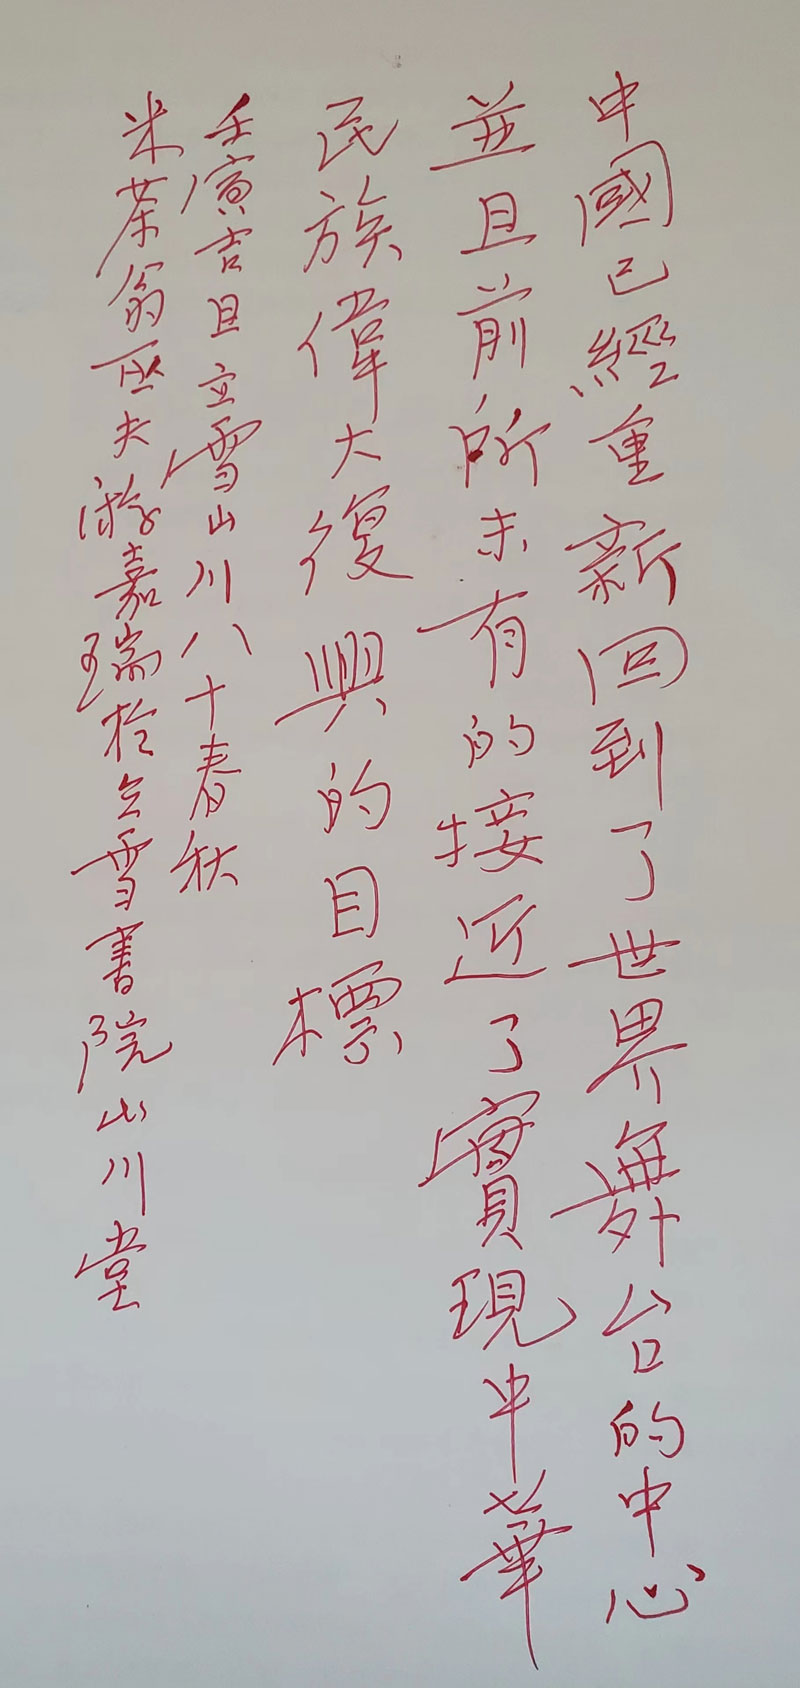 中國已經重新回到了世界舞台的中心
並且前所未有的接近了實現中華
民族偉大復興的目標
壬寅吉旦立雪山川八十春秋
米茶翁巫夫游嘉瑞於立雪書院山川堂